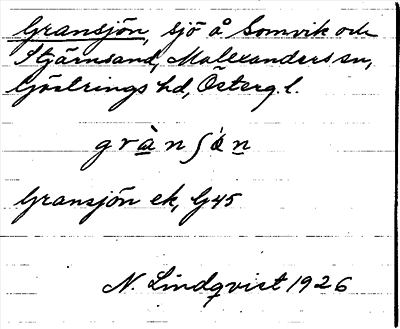 Gransjön, sjö å Somvik och
Stjärnsand, Malexanders sn,
Göstrings hd, Österg. l.
grànʃön
Gransjön ek, G45
N. Lindqvist 1926